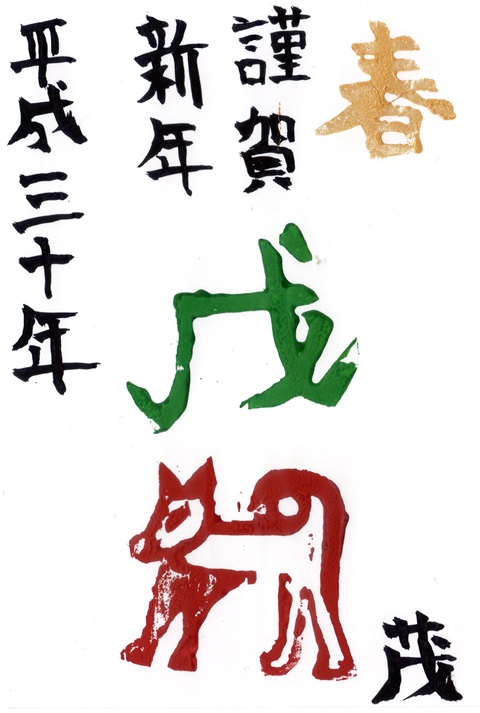 春
謹賀
新年
戊
平成三十年
茂